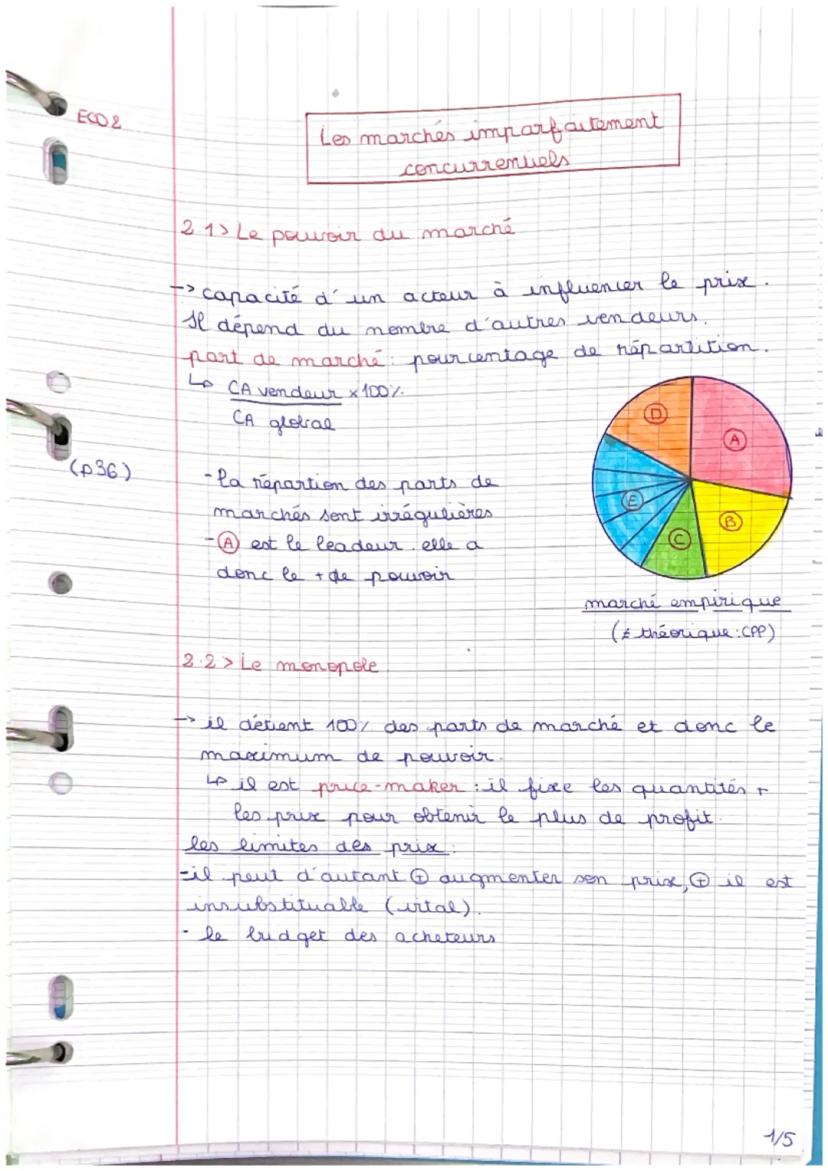 ECO 2
Les marchés imparfaitement
concurrentiels
2.1> Le pouvoir du marché
-> capacité d'un acteur à influencer le prix.
Il dépend du nombre d'autres vendeurs.
part de marché: pourcentage de répartition.
↳ CA vendeur x100%
CA global
(p36)
-la répartion des parts de
marchés sont irrégulières
-Ⓐ est le leadeur. elle a
donc le + de pouvoir
D
A
E
B
C
marché empirique
(≠ théorique: CPP)
2.2> Le monopole
-> il détient 100% des parts de marché et donc le
maximum de pouvoir.
↳ il est price-maker: il fixe les quantités +
les prix pour obtenir le plus de profit.
les limites des prix:
-il peut d'autant ⊕ augmenter son prix, ⊕ il est
insubstituable (vital).
- le budget des acheteurs
1/5